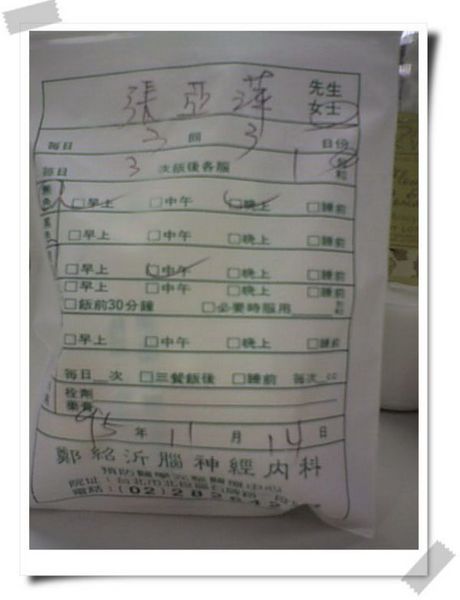 張亞萍 先生
女士
每日 3 回 3 日份
每日 3 次飯後各服 1 包 粒
□早上 □中午 □晚上 □睡前
□早上 □中午 □晚上 □睡前
□早上 □中午 □晚上 □睡前
□早上 □中午 □晚上 □睡前
□飯前30分鐘 □必要時服用
□早上 □中午 □晚上 □睡前
每日__次 □三餐飯後 □睡前 每次__cc
栓劑
藥費
95 年 11 月 14 日
鄭紹沂腦神經內科
院址:台北市北投區石牌路
電話:(02)282